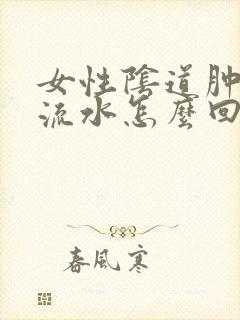 女性陰道肿
流水怎麼回
春風寒